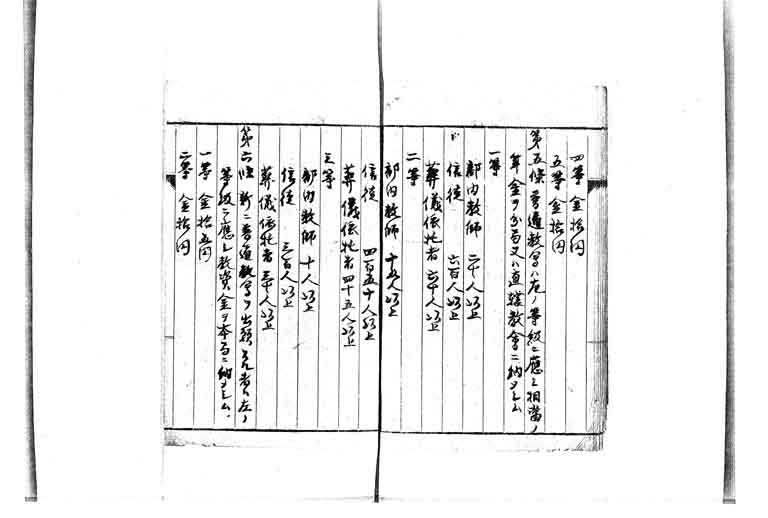 四等 金拾円
五等 金拾円
第五條 普通教會ハ左ノ等級ニ應シ相當ノ
年金ヲ分局又ハ直轄教會ニ納メシム
一等
部内教師 二十人以上
信徒 六百人以上
葬儀依托者 六十人以上
二等
部内教師 十五人以上
信徒 四百五十人以上
葬儀依托者四十五人以上
三等
部内教師 十人以上
信徒 三百人以上
葬儀依托者三十人以上
第六條 新ニ普通教會ヲ出願スル者ハ左ノ
等級ニ應シ教資金ヲ本局ニ納メシム
一等 金拾五円
二等 金拾円